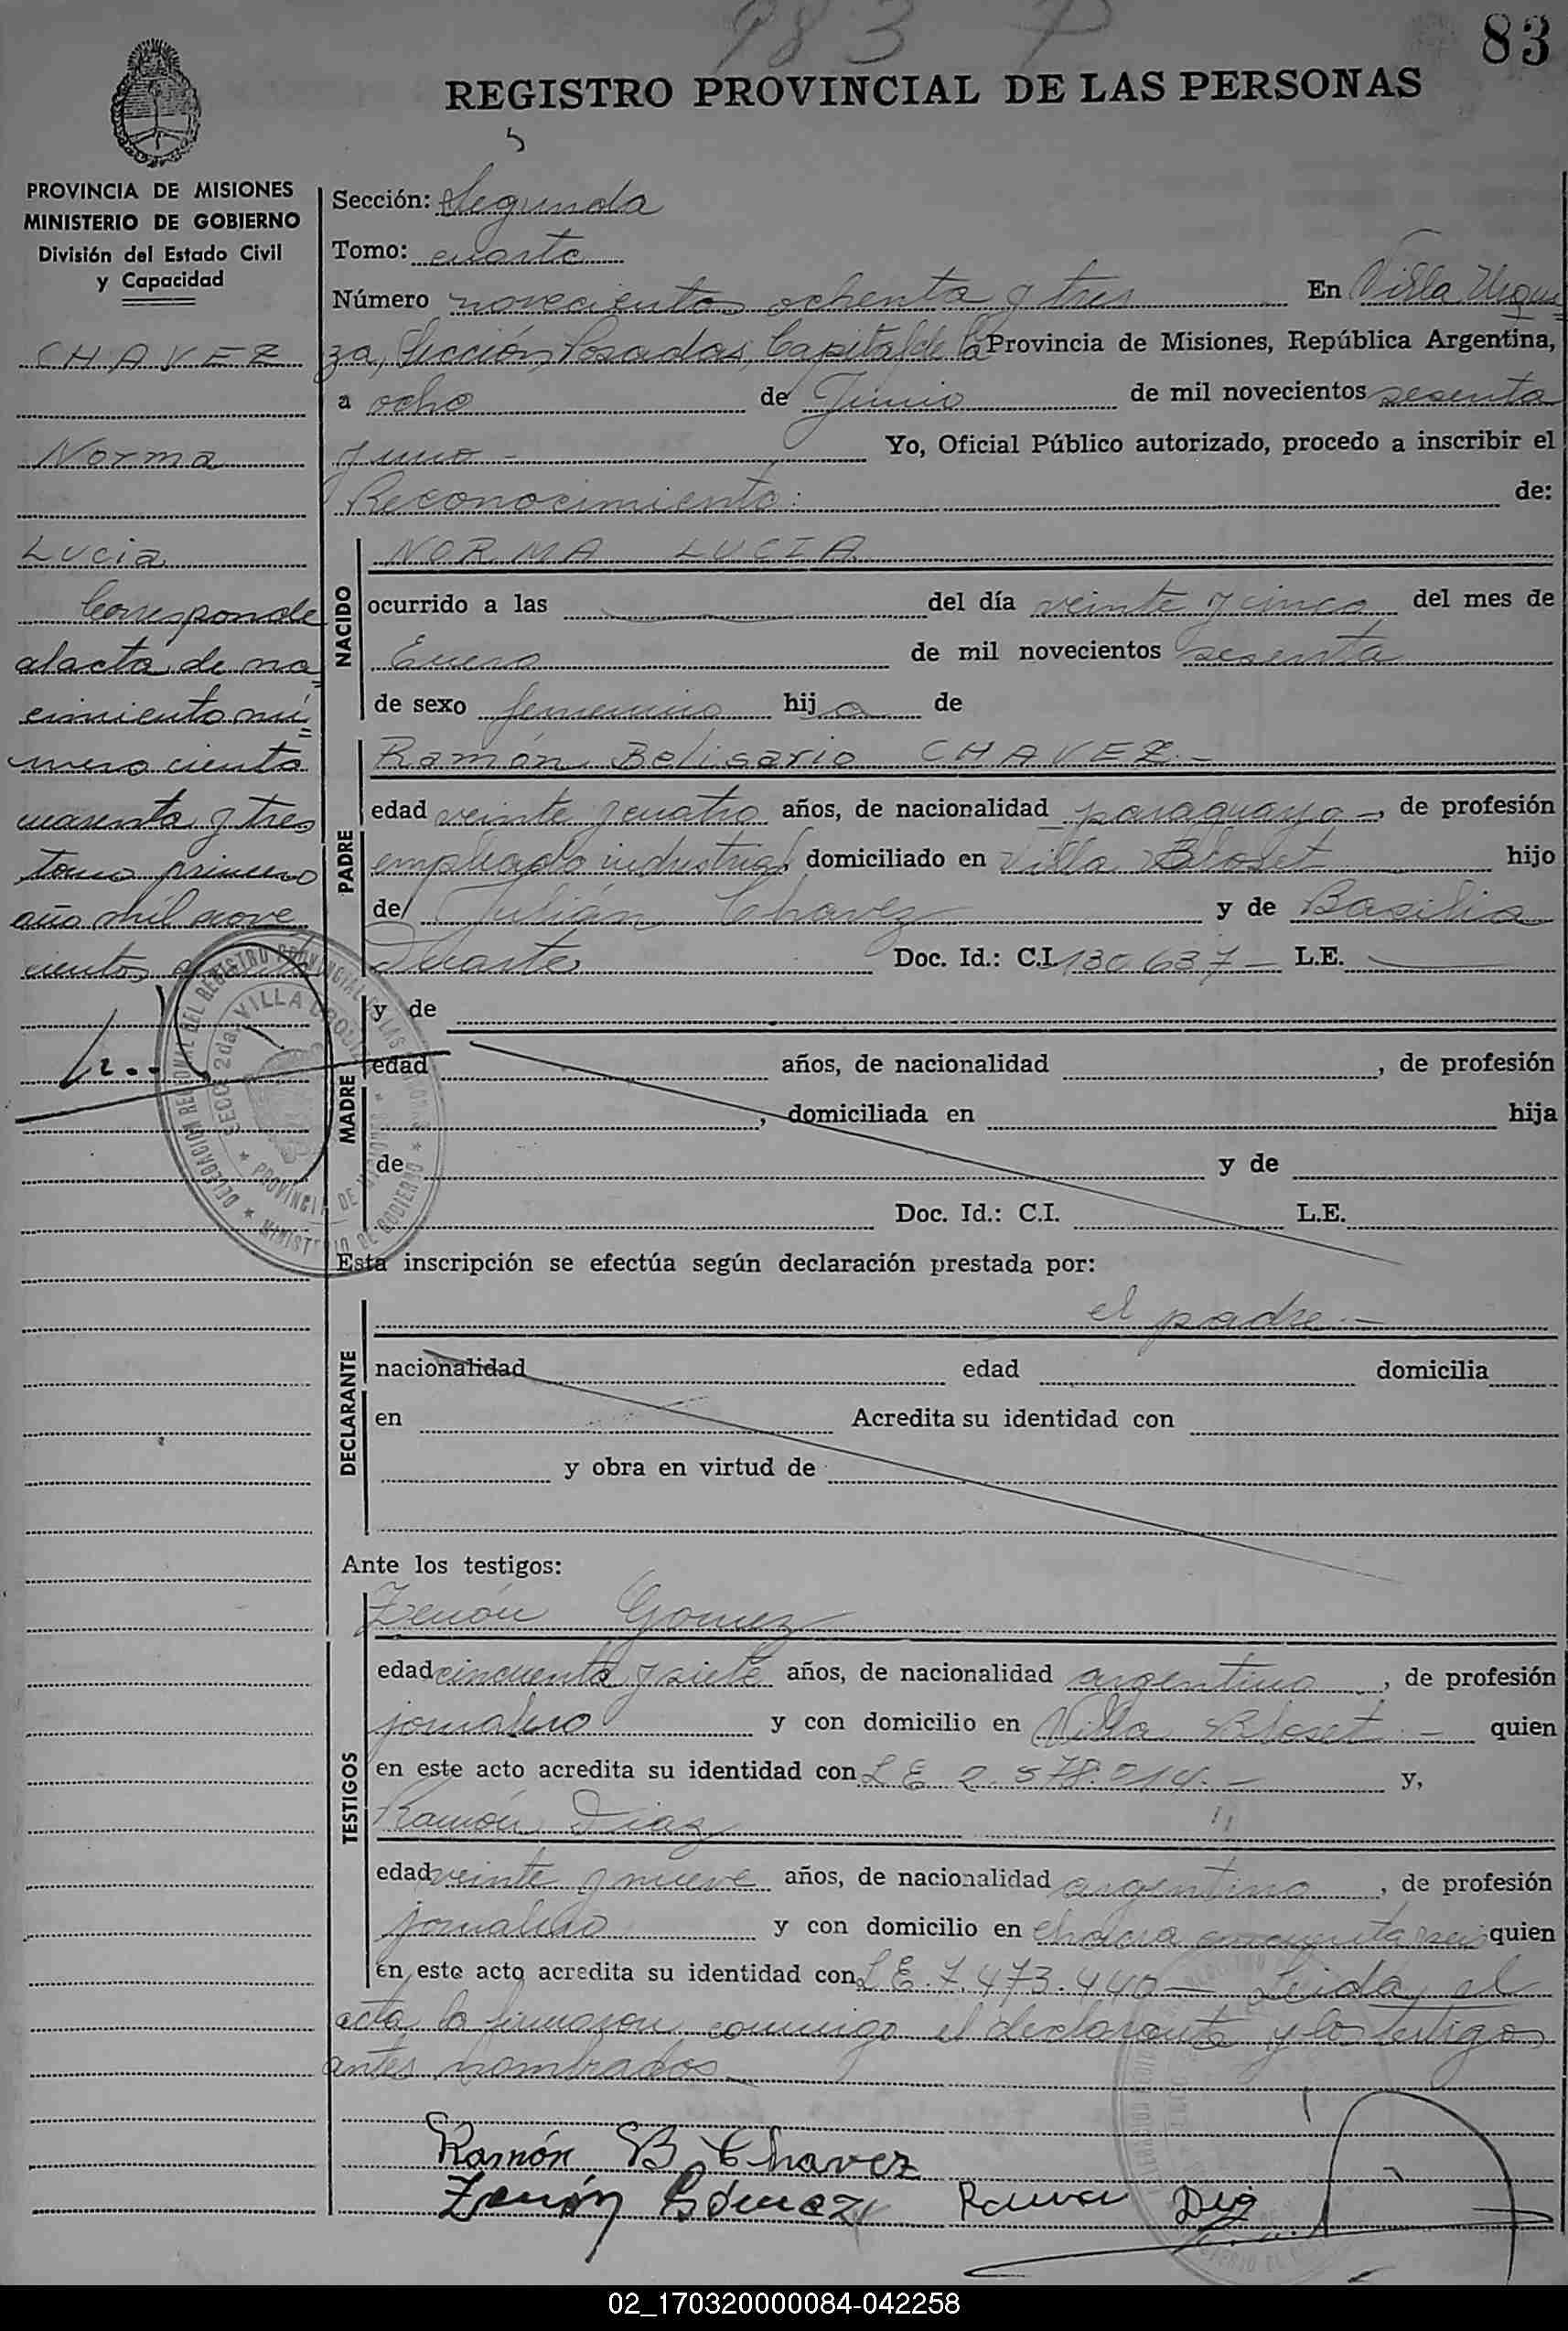 983
83
REGISTRO PROVINCIAL DE LAS PERSONAS
PROVINCIA DE MISIONES
MINISTERIO DE GOBIERNO
División del Estado Civil
y Capacidad
CHAVEZ
Norma
Lucia
Corresponde
al acta de na
cimiento nú
mero ciento
cuarenta y tres
tomo primero
año mil nove
cientos
Sección: Segunda
Tomo: cuarto
Número novecientos ochenta y tres En Villa Urqui
za, Sección Posadas, Capital de la Provincia de Misiones, República Argentina,
a ocho de Junio de mil novecientos sesenta
y uno - Yo, Oficial Público autorizado, procedo a inscribir el
Reconocimiento: de:
NACIDO
NORMA LUCIA
ocurrido a las del día veinte y cinco del mes de
Enero de mil novecientos sesenta
de sexo femenino hija de
PADRE
Ramón Belisario CHAVEZ.-
edad veinte y cuatro años, de nacionalidad paraguayo -, de profesión
empleado industrial domiciliado en Villa Blosset hijo
de Julián Chavez y de Basilia
Duarte Doc. Id.: C.I. 130.637 - L.E.
MADRE
y de
edad años, de nacionalidad , de profesión
, domiciliada en hija
de y de
Doc. Id.: C.I. L.E.
DELEGACION REGIONAL DEL REGISTRO PROVINCIAL DE LAS PERSONAS
SECC. 2da. VILLA URQUIZA
PROVINCIA DE MISIONES
MINISTERIO DE GOBIERNO
Esta inscripción se efectúa según declaración prestada por:
DECLARANTE
el padre.-
nacionalidad edad domicilia
en Acredita su identidad con
y obra en virtud de
Ante los testigos:
TESTIGOS
Zenón Gomez
edad cincuenta y siete años, de nacionalidad argentino , de profesión
jornalero y con domicilio en Villa Blosset.- quien
en este acto acredita su identidad con L E 2.578.214.- y,
Ramón Diaz
edad veinte y nueve años, de nacionalidad argentino , de profesión
jornalero y con domicilio en chacra cincuenta quien
en este acto acredita su identidad con L E. 7.473.440 - Leida el
acta la firmaron conmigo el declarante y los testigos
antes nombrados -
Ramón B Chavez
Zenón Gómez Ramon Diaz
02_170320000084-042258